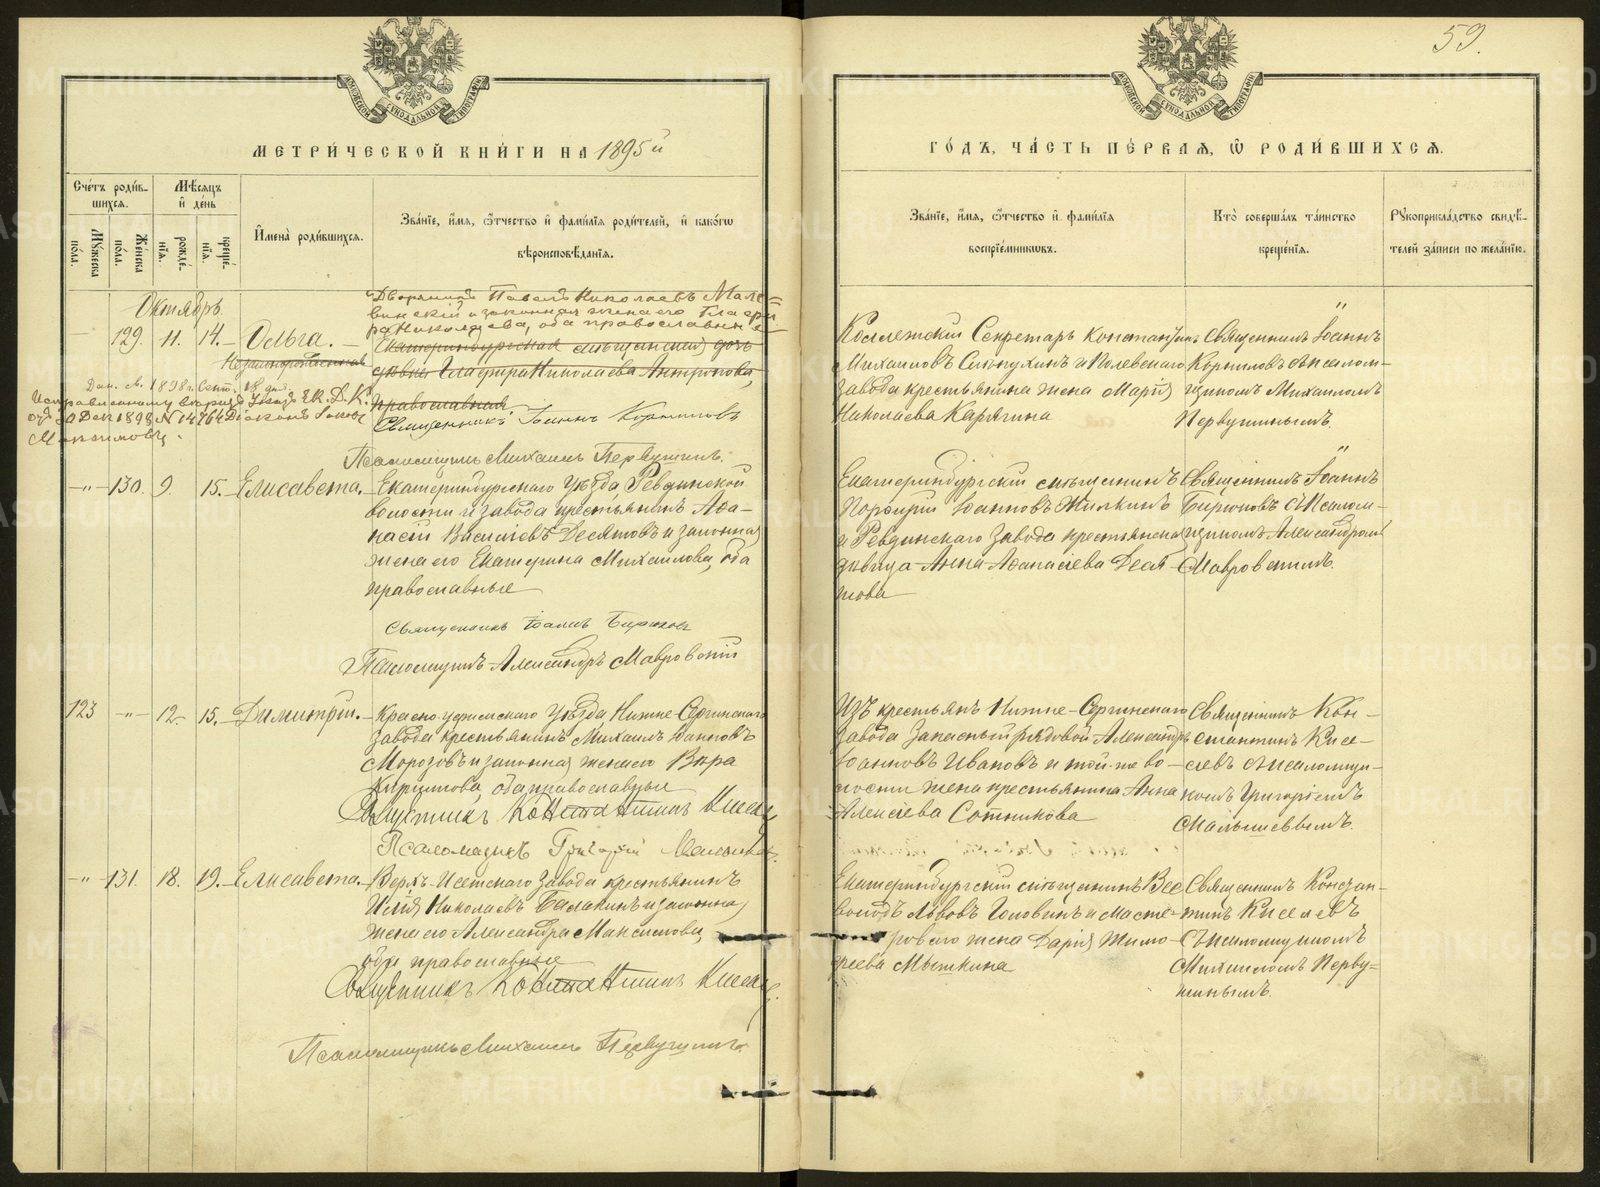 59.
МЕТРИ́ЧЕСКОЙ КНИ́ГИ НА 1895й
Сче́тъ роди́в-
шихся.
Мѣ́сяцъ
и҆ де́нь
Му́жеска
по́ла.
Же́нска
по́ла.
рожде́-
нїя.
креще́-
нїя.
И҆мена̀ роди́вшихся.
Зва́нїе, и҆́мя, ѻ҆́тчество и҆ фами́лїя роди́телей, и҆ како́гѡ
вѣроисповѣ́данїя.
Октябрь.
129. 11. 14. Ольга.
Дворянинъ Павелъ Николаевъ Мале-
винскій и законная жена его Глафи
ра Николаева, оба православные
Екатеринбургская мѣщанская дочь
дѣвица Глафира Николаева Антропова,
православная.
Незаконорожденная
Дан. св. 1898 г. Сент. 18 дня.
Исправленному вѣрить Указъ Ек. Д. К.
отъ Дек 1898 № 14764 Діаконъ
Священникъ Іоаннъ Корниловъ
Псаломщикъ Михаилъ Первушинъ.
-"- 130. 9. 15. Елисавета.
Екатеринбургскаго Уѣзда, Ревдинской
волости и завода крестьянинъ Аѳа-
насій Василіевъ Десятовъ и законная
жена его Екатерина Михаилова, оба
православные
Священникъ Іоаннъ Бирюковъ
Псаломщикъ Александръ Мавровскій
123 -"- 12. 15. Димитрій.
Красноуфимскаго Уѣзда Нижне-Сергинскаго
Завода крестьянинъ Михаилъ Іоанновъ
Морозовъ и законная жена его Вѣра
Кирилова, оба православные
Священникъ Константинъ Кисел
Псаломщикъ Григорій Малышев
-"- 131. 18. 19. Елисавета.
Верхъ-Исетскаго Завода крестьянинъ
Илія Николаевъ Балакинъ и законная
жена его Александра Максимова,
оба православные
Священникъ Константинъ Кисел
Псаломщикъ Михаилъ Первушинъ.
ГО́ДЪ, ЧА́СТЬ ПЕ́РВАЯ, Ѡ҆ РОДИ́ВШИХСЯ.
Зва́нїе, и҆́мя, ѻ҆́тчество и҆ фами́лїя
воспрїе́мниковъ.
Кто̀ соверша́лъ та́инство
креще́нїя.
Рꙋкоприкла́дство свидѣ́-
телей за́писи по жела́нїю.
Коллежскій Секретарь Константинъ
Михаиловъ и Полевскаго
завода крестьянина жена Марія
Николаева Карягина
Священникъ Іоаннъ
Корниловъ съ псалом-
щикомъ Михаиломъ
Первушинымъ.
Екатеринбургскій мѣщанинъ
Порфирій Іоанновъ
и Ревдинскаго Завода крестьянская
дѣвица Анна Аѳанасіева Деся-
това
Священникъ Іоаннъ
Бирюковъ съ Псалом-
щикомъ Александромъ
Мавровскимъ.
Изъ крестьянъ Нижне-Сергинскаго
Завода Запасный рядовой Александръ
Іоанновъ Ивановъ и той-же во-
лости жена крестьянина Анна
Алексіева Сотникова
Священникъ Кон-
стантинъ Кисе-
левъ съ псаломщи-
комъ Григоріемъ
Малышевымъ.
Екатеринбургскій мѣщанинъ Все
володъ Львовъ Головинъ и масте-
роваго жена Дарія Тимо-
феева Мыткина
Священникъ Констан-
тинъ Киселевъ
съ псаломщикомъ
Михаиломъ Перву-
шинымъ.